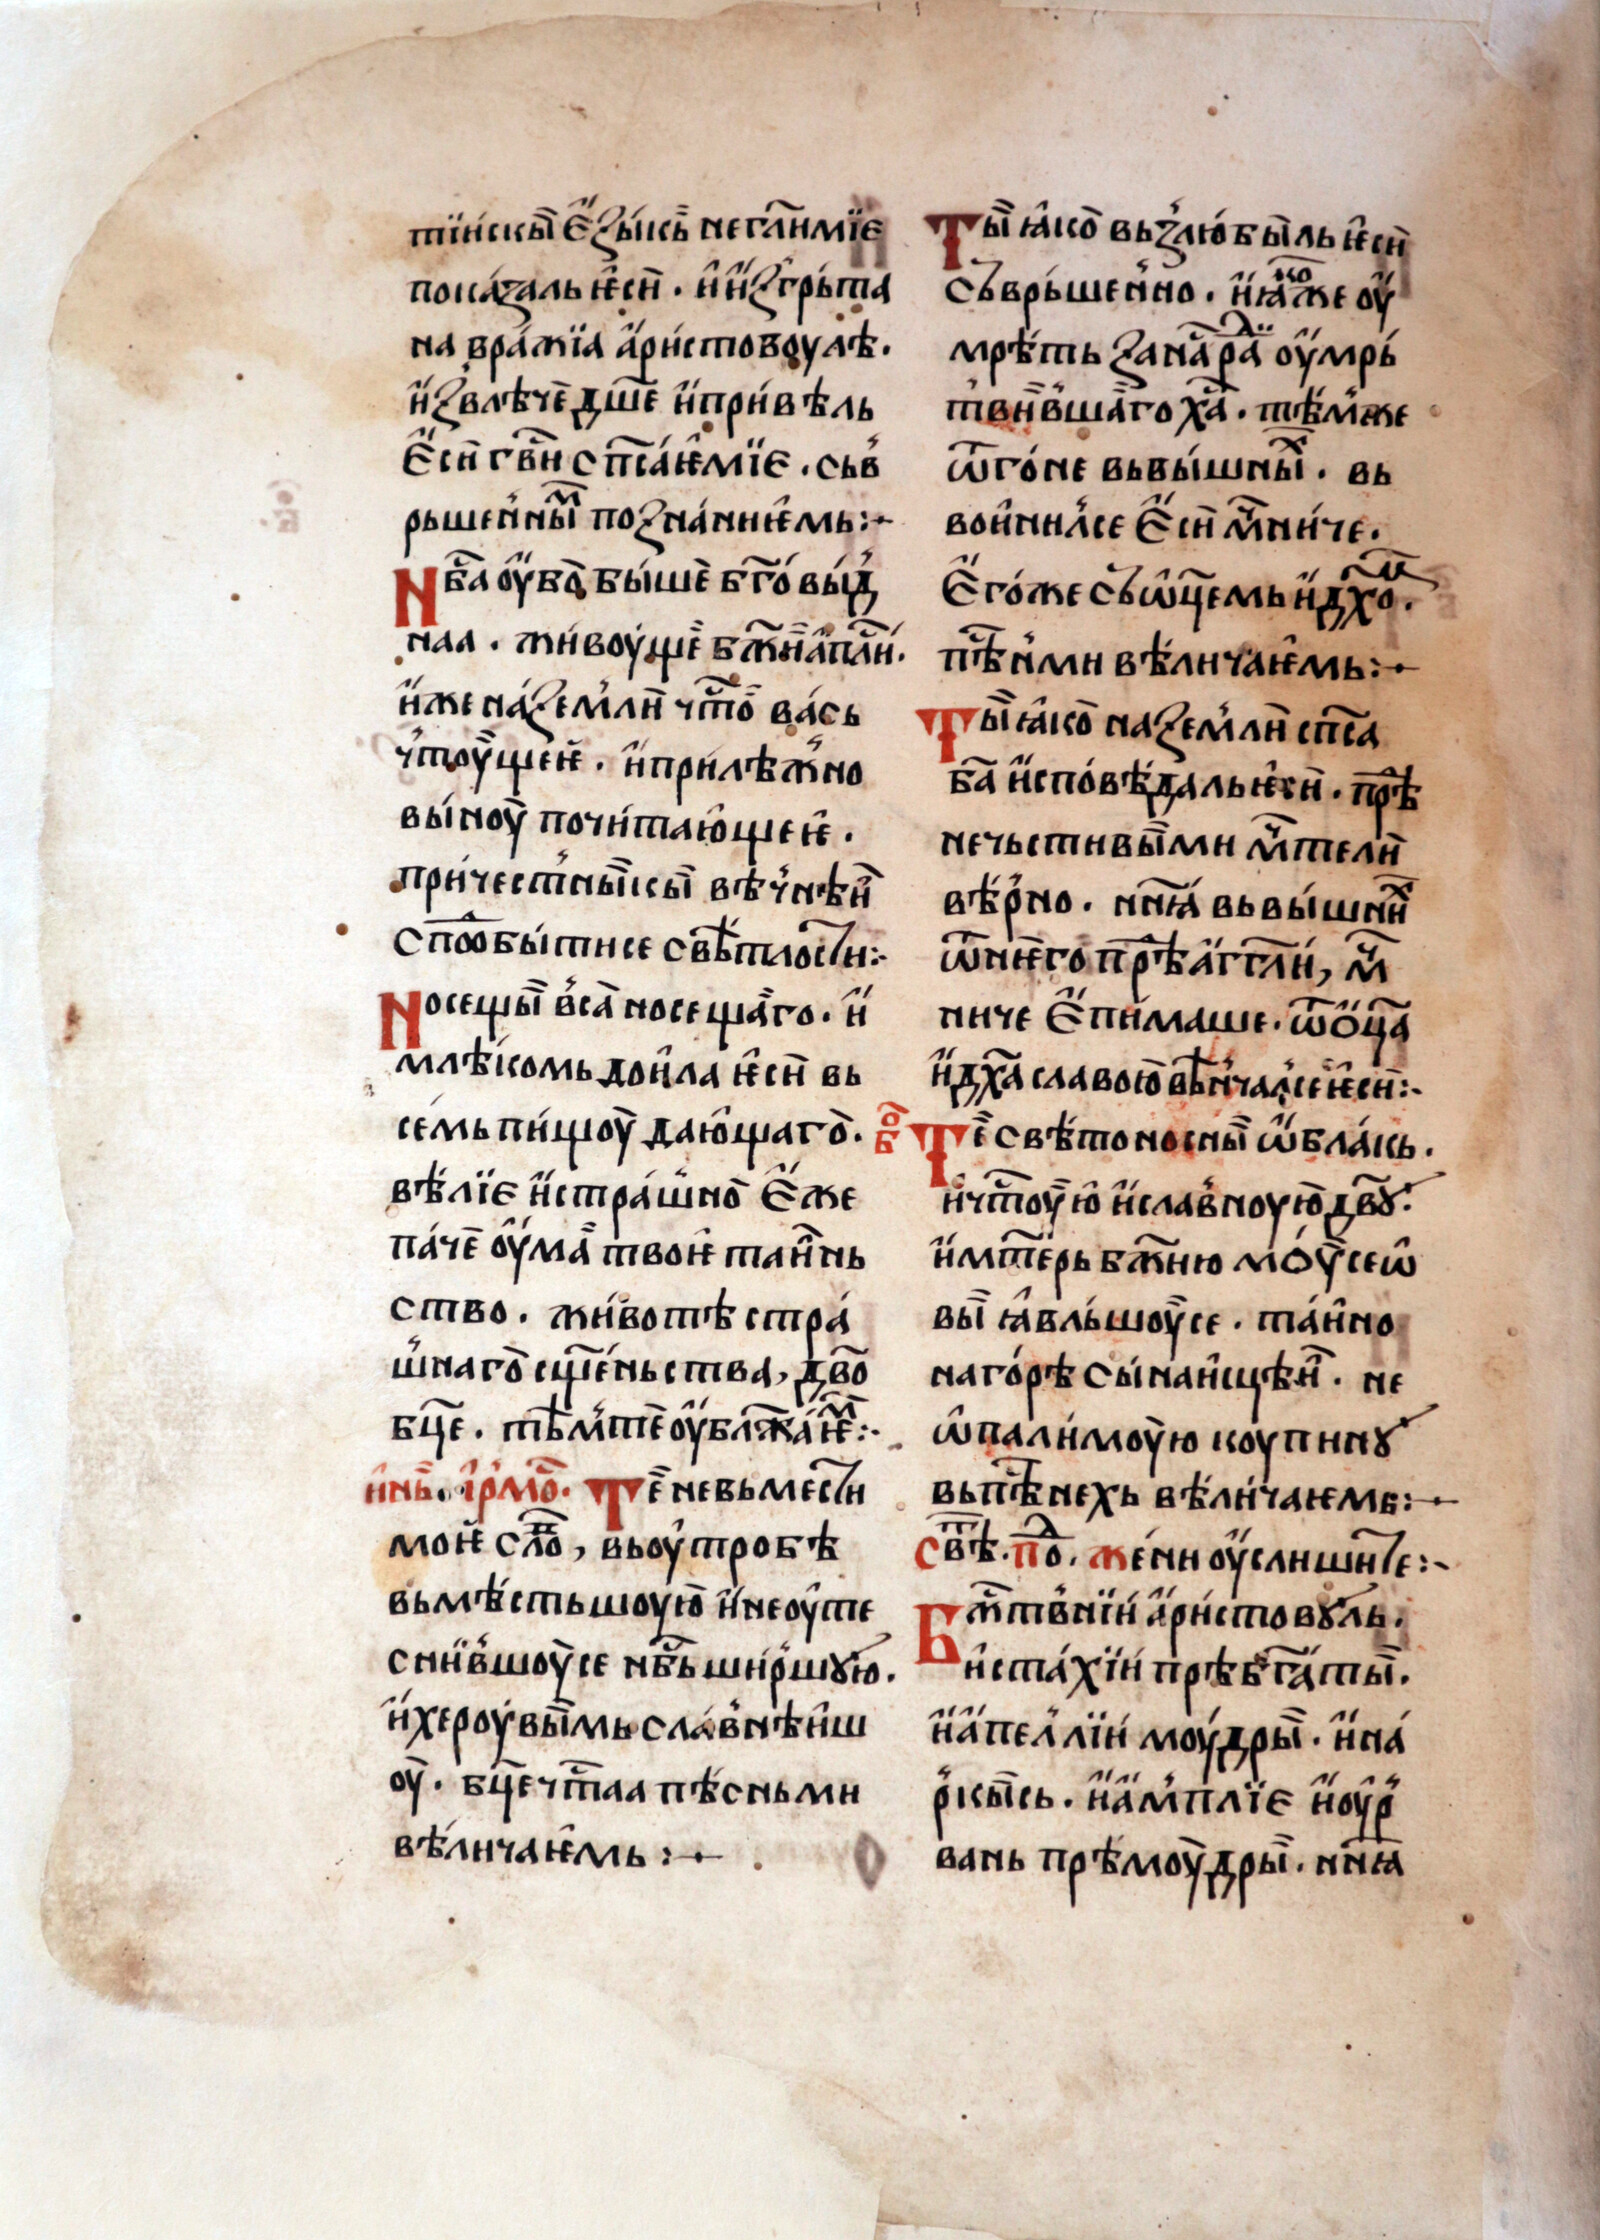 тїискыи Е҆зы́кь негл҃имїе
пока́заль ѥ҆си̏ . и҆ и҆згрь́та
на вра́жїа а҆ри́стовоулѣ .
и҆звлѣ́че дш҃е и҆приве́ль
Е҆си̏ гв҃и сп҃са́ѥмїе . сьв
рьше́нныⷨ позна́ниѥмь :-
Нб҃а оу҆бо̀ бы́ше бг҃о́ви́д
наа . жи́воу́ще бж҃ни а҆пⷭ҇ли .
и҆же на́земли̏ чтⷭ҇о ва́сь
чтоу́щеѥ . и҆прилѣ́жно
вы́ноу почи́таю҆щеѥ .
при́честникы вѣ́чнѣи
сп҃обы́тисе свѣ́тлости :-
Носещыи вса̀ носеща́го . и҆
млѣ́комь дои҆ла ѥ҆си̏ вь
семь пи́щоу даю҆щаго̀ .
вѣ́лїе и҆стра́шно Е҆же
па́че оу҆ма̀ твоѥ таи҆нь
ство . жи́вотѣ стра́
шнаго̀ сщ҃е́ньства , дв҃о
бц҃е . тѣ́мте оу҆блж҃а́ѥⷨ :-
и҆нь . і҆рмо . Те̏ невьмести
моѥ сло҃в , вьоу҆тробѣ
вьмѣ́стьшоую̀ и҆неоу҆те
сни́вшоу̀се нб҃ь ши́ршꙋю .
и҆хероу́вымь сла́внѣи҆ш
оу̀ . бц҃е чтⷭ҇аа пѣ́сньми
вѣ́личаѥ҆мь :-
Ты̏ ꙗ҆ко̀ вьзлю́быль ѥ҆си̏
сь́врь́шенно . и҆ꙗ҆коже оу҆
мрѣ́ть зана̀ ра́ⷣи оу҆мрь́
тви́вша́го х҃а . тѣ́мже
ѿго́не вьвы́шныⷯ . вь
вои҆нилсе Е҆си̏ мⷱ҇ни́че .
Е҆го́же сь́ѡ҆ц҃емь и҆дх҃оⷨ .
пѣⷭ҇нми вѣ́личаѥ҆мь :-
Ты̏ ꙗ҆ко̀ на земли̏ сп҃са
б҃а и҆спо́вѣ́даль ѥ҆си̏ . прѣⷣ
нечьстивы́ми мⷱ҇тели̏
вѣ́рно . нн҃ꙗ вьвы́шниⷯ
ѿнѥ҆го прѣⷣ а҆гг҃ли , мⷱ҇
ниче Е҆пи́маше . ѿО҆ц҃а
и҆дх҃а славою вѣ́нчалсе ѥ҆си̏ :-
бо҃ Те̏ свѣ́тоносны́и ѡ҆бла́кь .
и҆чтⷭ҇оую҆ и҆сла́вноую̀ дв҃ꙋ .
и҆мт҃ерь бж҃ию мо́ӱсеѡ
вы̏ ꙗ҆вль́шоу̀се . та́и҆но
наго́рѣ сы́наи҆сцѣи . не
ѡ҆пали́моу̀ю коупинꙋ
вьпѣⷭ҇нехь вѣ́ли́чаѥмь :-
свѣⷮ . поⷣ . же́ни оу҆слишите :-
Бжⷭ҇твнїи а҆ри́стовꙋль .
и҆ста́хїи прѣбг҃а́тыи .
и҆а҆пеллїи моу́дрыи . и҆на́
ркысь . и҆а҆мплїе и҆оу҆р
вань прѣ́моу́дрыи . нн҃ꙗ